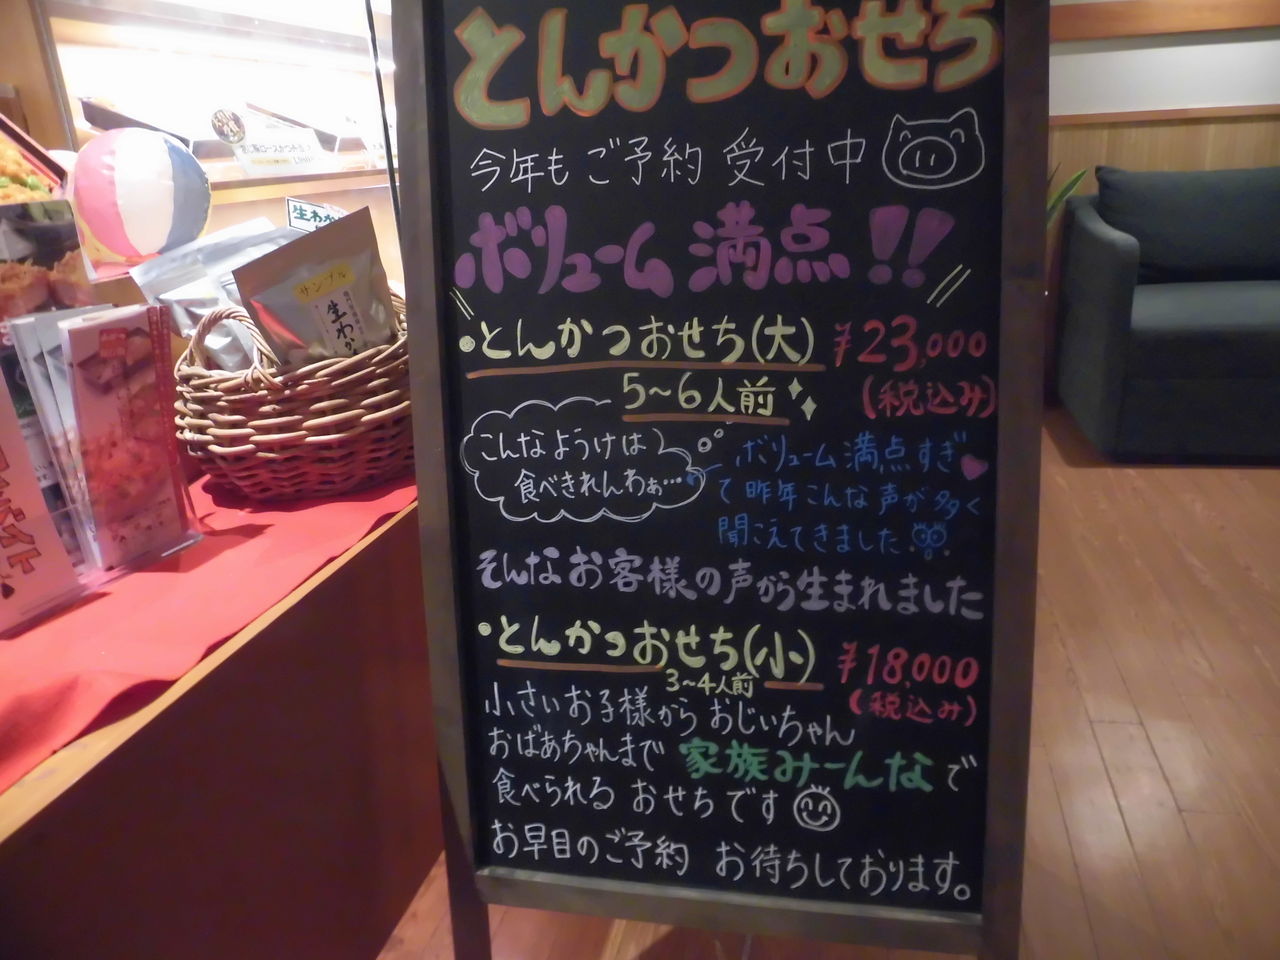 とんかつおせち
今年も ご予約 受付中
ボリューム満点!!
・とんかつおせち(大) ¥23,000
5〜6人前 (税込み)
こんなようけは
食べきれんわぁ…
ボリューム満点すぎ
て昨年こんな声が多く
聞こえてきました
そんなお客様の声から生まれました
・とんかつおせち(小) ¥18,000
3〜4人前 (税込み)
小さいお子様から おじいちゃん
おばあちゃんまで 家族みーんなで
食べられる おせちです
お早目のご予約 お待ちしております。
サンプル
生わか
生わか